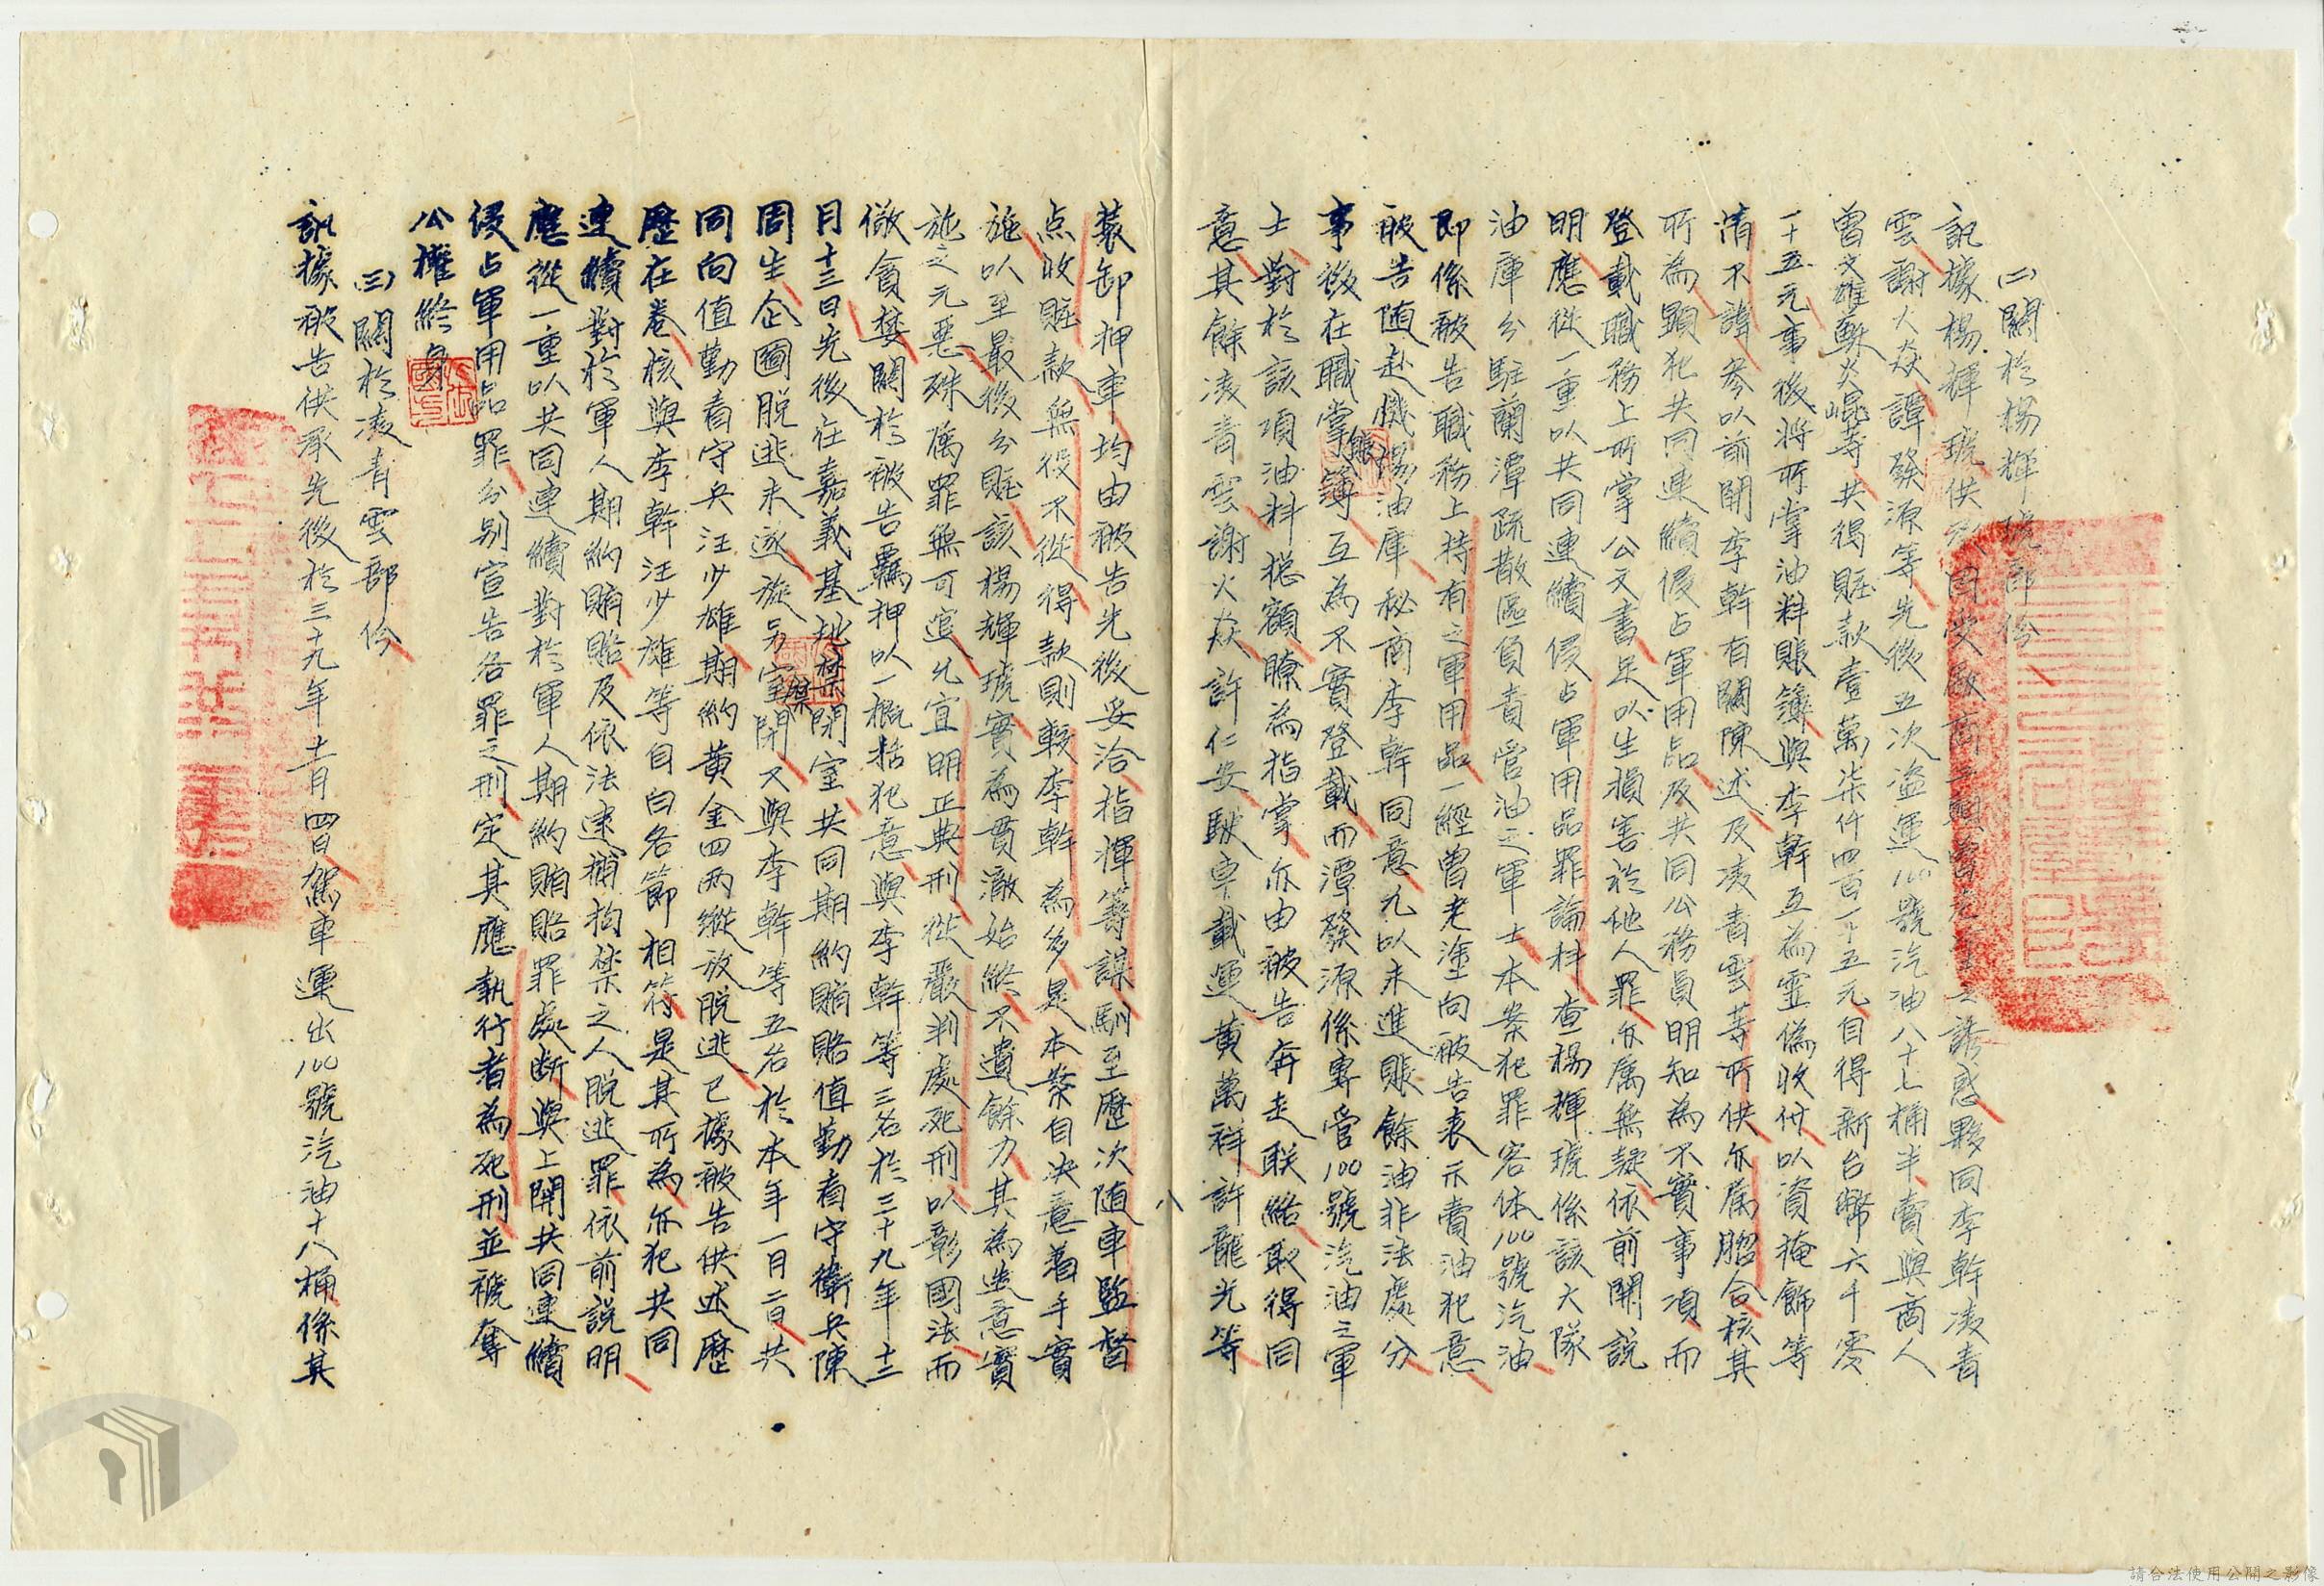 (二)關於楊輝琥部份
訊據楊輝琥供致因受歐商王興曾老塗王云誘惑夥同李幹凌青
雲謝火焱譚發源等先後五次盜運100號汽油八十七桶半賣與商人
曾文雄蘇火崐等共得賍款壹萬柒仟四百一十五元自得新台幣六千零
一十五元事後將所掌油料賬簿與李幹互為虛偽收付以資掩飾等
情不諱參以前開李幹有關陳述及凌青雲等所供亦属脗合核其
所為顯犯共同連續侵占軍用品及共同公務員明知為不實事項而
登載職務上所掌公文書足以生損害於他人罪亦属無疑依前開說
明應從一重以共同連續侵占軍用品罪論科查楊輝琥係該大隊
油庫分駐蘭潭疏散區負責管油之軍士本案犯罪客体100號汽油
即係被告職務上持有之軍用品一經曾老塗向被告表示賣油犯意
被告随赴機場油庫秘商李幹同意允以未進賬餘油非法處分
事後在職掌賬簿互為不實登載而潭發源係專管100號汽油之軍
士對於該項油料總額瞭為指掌亦由被告奔走联絡取得同
意其餘凌青雲謝火焱許仁安駛車載運黃萬祥許龍光等
八
裝卸押車均由被告先後妥洽指揮籌謀馴至歷次随車監督
点收賍款無役不從得款則較李幹為多是本案自決意着手實
施以至最後分賍該楊輝琥實為貫澈始終不遺餘力其為造意實
施之元惡殊属罪無可逭允宜明正典刑從嚴判處死刑以彰國法而
儆貪婪關於被告羈押以一概括犯意與李幹等三名於三十九年十二
月十三日先後在嘉義基地禁閉室共同期約賄賂值勤看守衛兵陳
周生企圖脫逃未遂旋另室禁閉又與李幹等五名於本年一月二日共
同向值勤看守兵汪少雄期約黃金四両縱放脫逃已據被告供述歷
歷在卷核與李幹汪少雄等自白各節相符是其所為亦犯共同
連續對於軍人期約賄賂及依法逮捕拘禁之人脫逃罪依前說明
應從一重以共同連續對於軍人期約賄賂罪處断與上開共同連續
侵占軍用品罪分别宣告各罪之刑定其應執行者為死刑並褫奪
公權終身
(三)關於凌青雲部份
訊據被告供承先後於三十九年十一月四日駕車運出100號汽油十八桶係其
請合法使用公開之影像